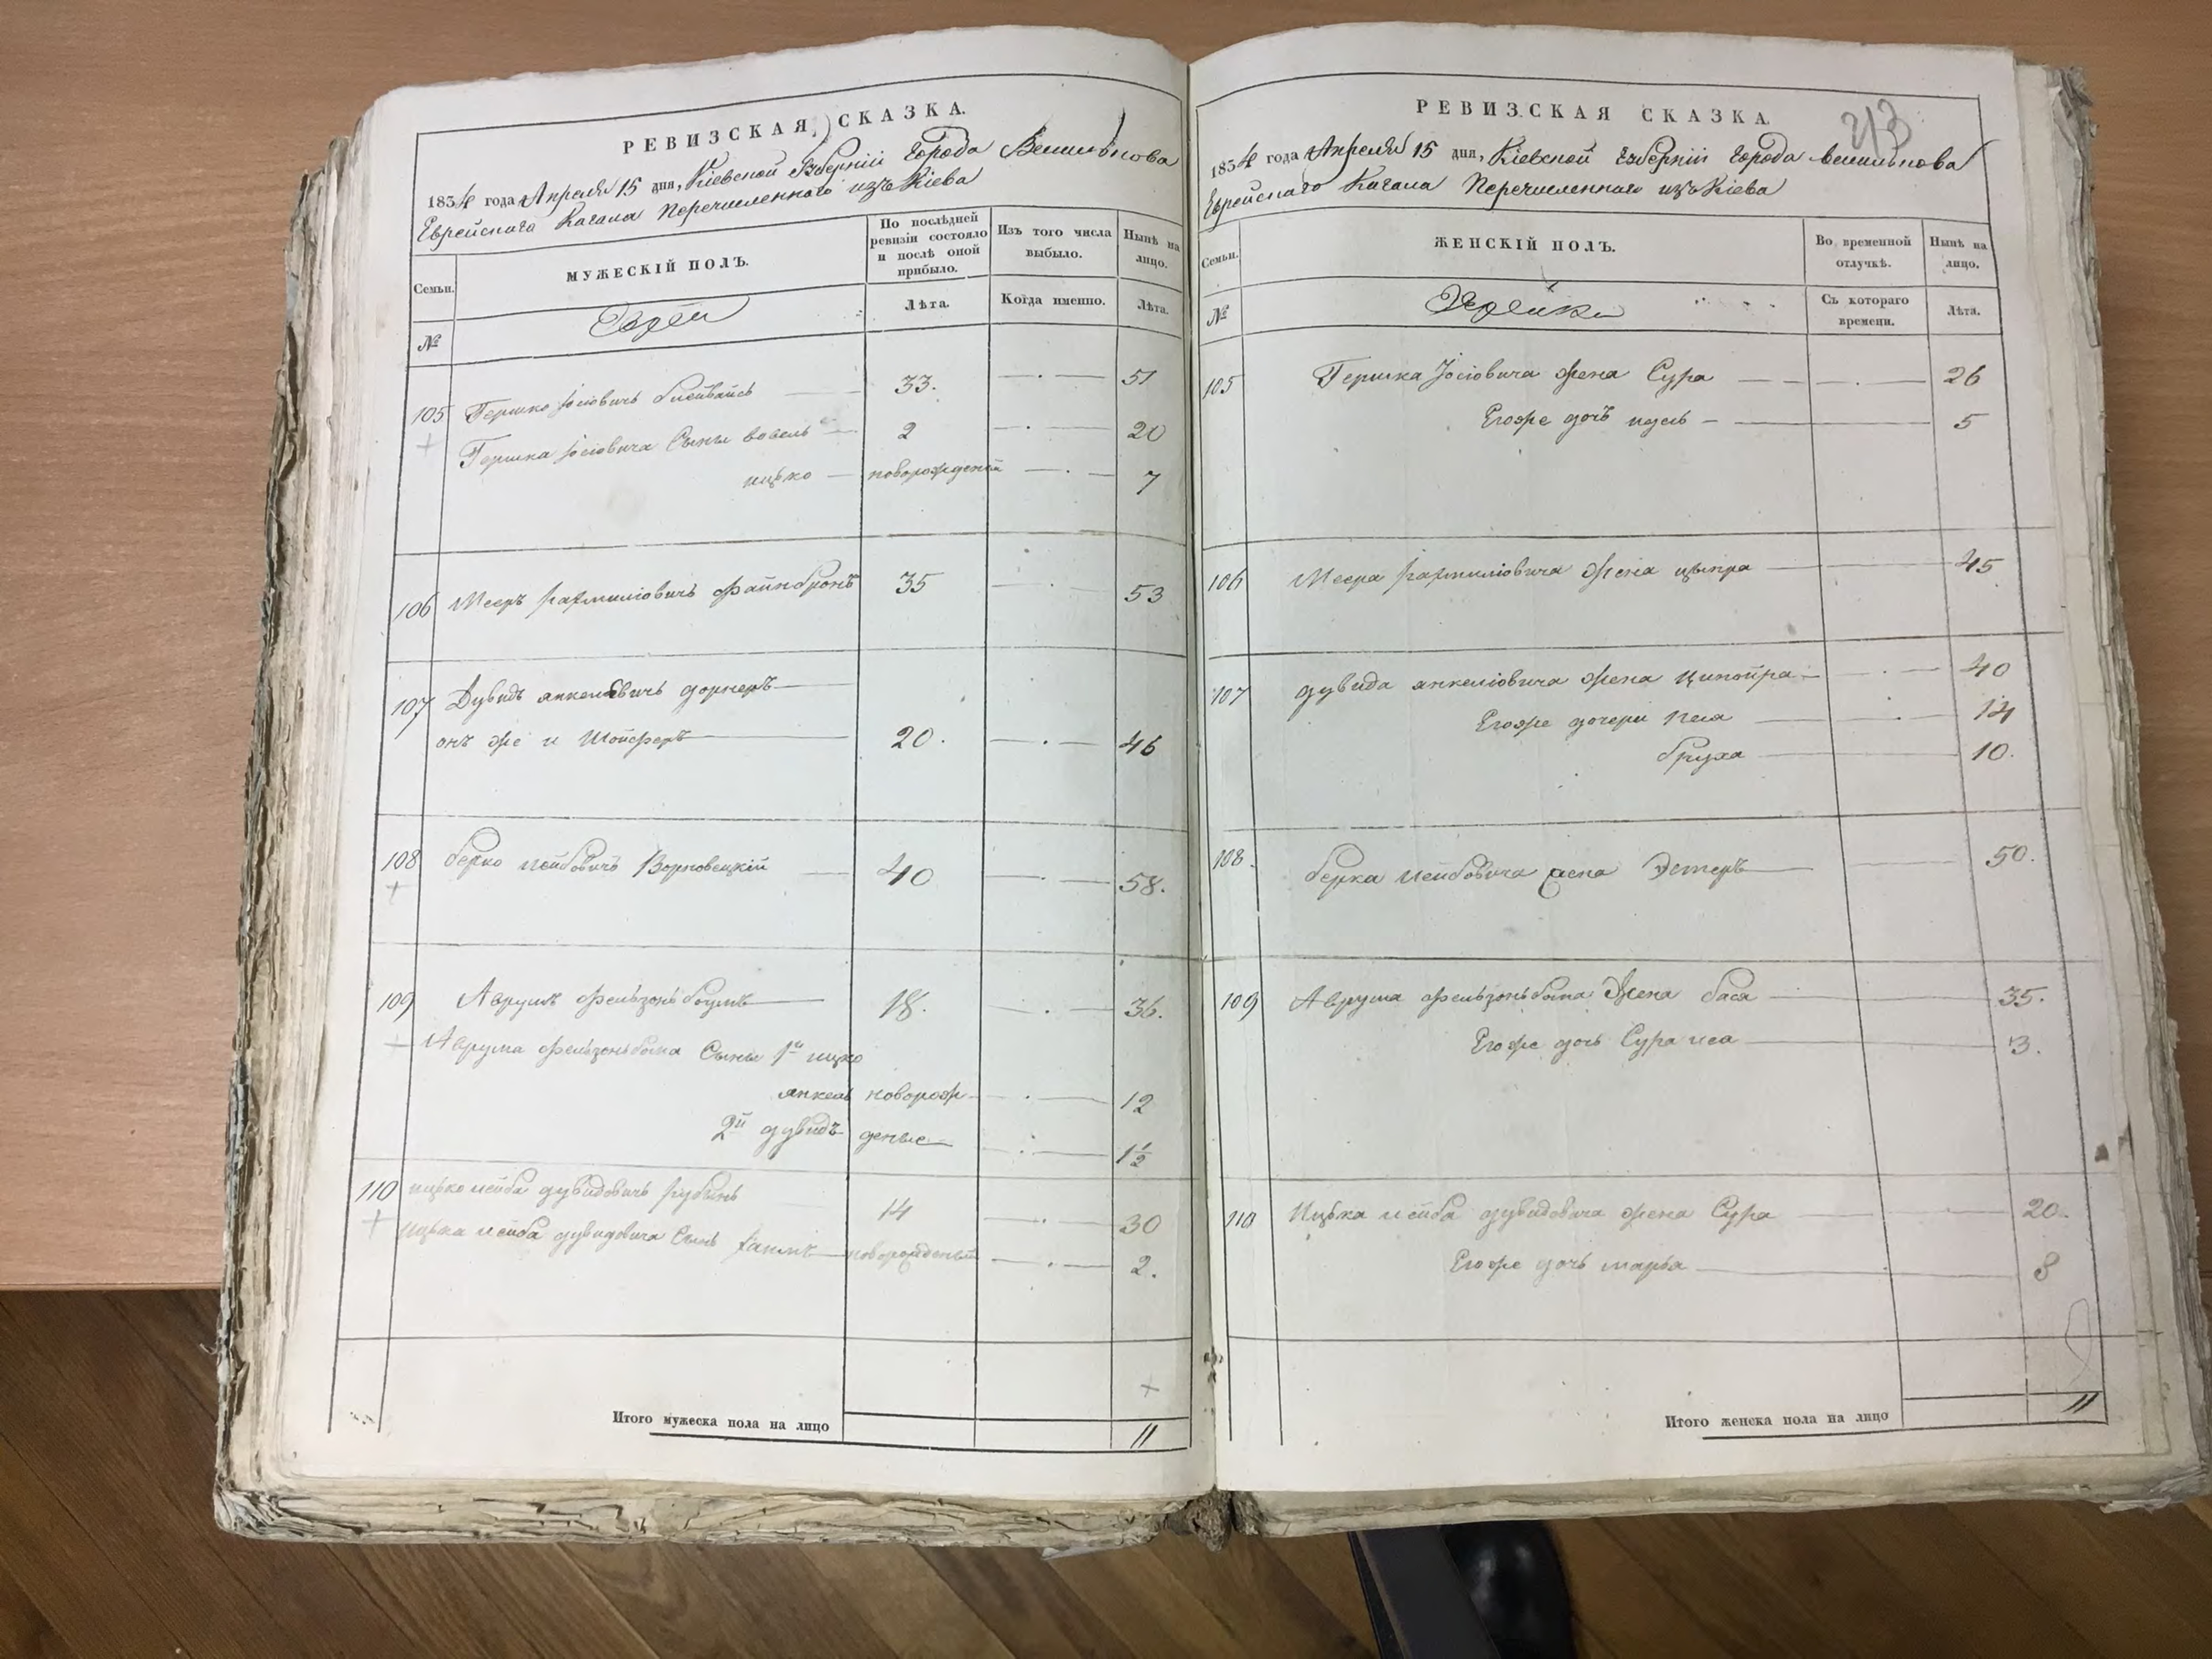 РЕВИЗСКАЯ СКАЗКА.
1834 года Апреля 15 дня, Кіевской Губерніи города
Еврейскаго Кагала Перечисленнаго изъ Кіева
Семьи.
МУЖЕСКІЙ ПОЛЪ.
По послѣдней ревизіи состояло и послѣ оной прибыло.
Изъ того числа выбыло.
Нынѣ на лицо.
№
Евреи
Лѣта.
Когда именно.
Лѣта.
105 Гершко Іосіовичъ 33. 51
Гершка Іосіовича Сыны вовель 2 20
ицко новорожденый 7
106 Мееръ файнбронъ 35 53
107 Дувидъ янкеловичъ
онъ же и 20. 46
108 берко лейбовичъ 40 58.
109 Аврумъ 18. 36.
Аврума Сыны 1й ицко
янкель новорож 12
2й дувидъ деные 1½
110 ицко лейба дувидовичъ рубинъ 14 30
ицка лейба дувидовича Сынъ новорожденый 2.
Итого мужеска пола на лицо 11
РЕВИЗСКАЯ СКАЗКА.
213
1834 года Апреля 15 дня, Кіевской Губерніи города
Еврейскаго Кагала Перечисленнаго изъ Кіева
Семьи.
ЖЕНСКІЙ ПОЛЪ.
Во временной отлучкѣ.
Нынѣ на лицо.
№
Еврейки
Съ котораго времени.
Лѣта.
105 Гершка Іосіовича жена Сура 26
Егоже дочь 5
106 Меера жена ципра 45
107 дувида янкеліовича жена ципойра 40
Егоже дочери песя 14
бруха 10.
108. берка лейбовича жена Эстеръ 50.
109 Аврума жена бася 35.
Егоже дочь Сура 3.
110 Ицка лейба дувидовича жена Сура 20.
Егоже дочь марья 8
Итого женска пола на лицо 11